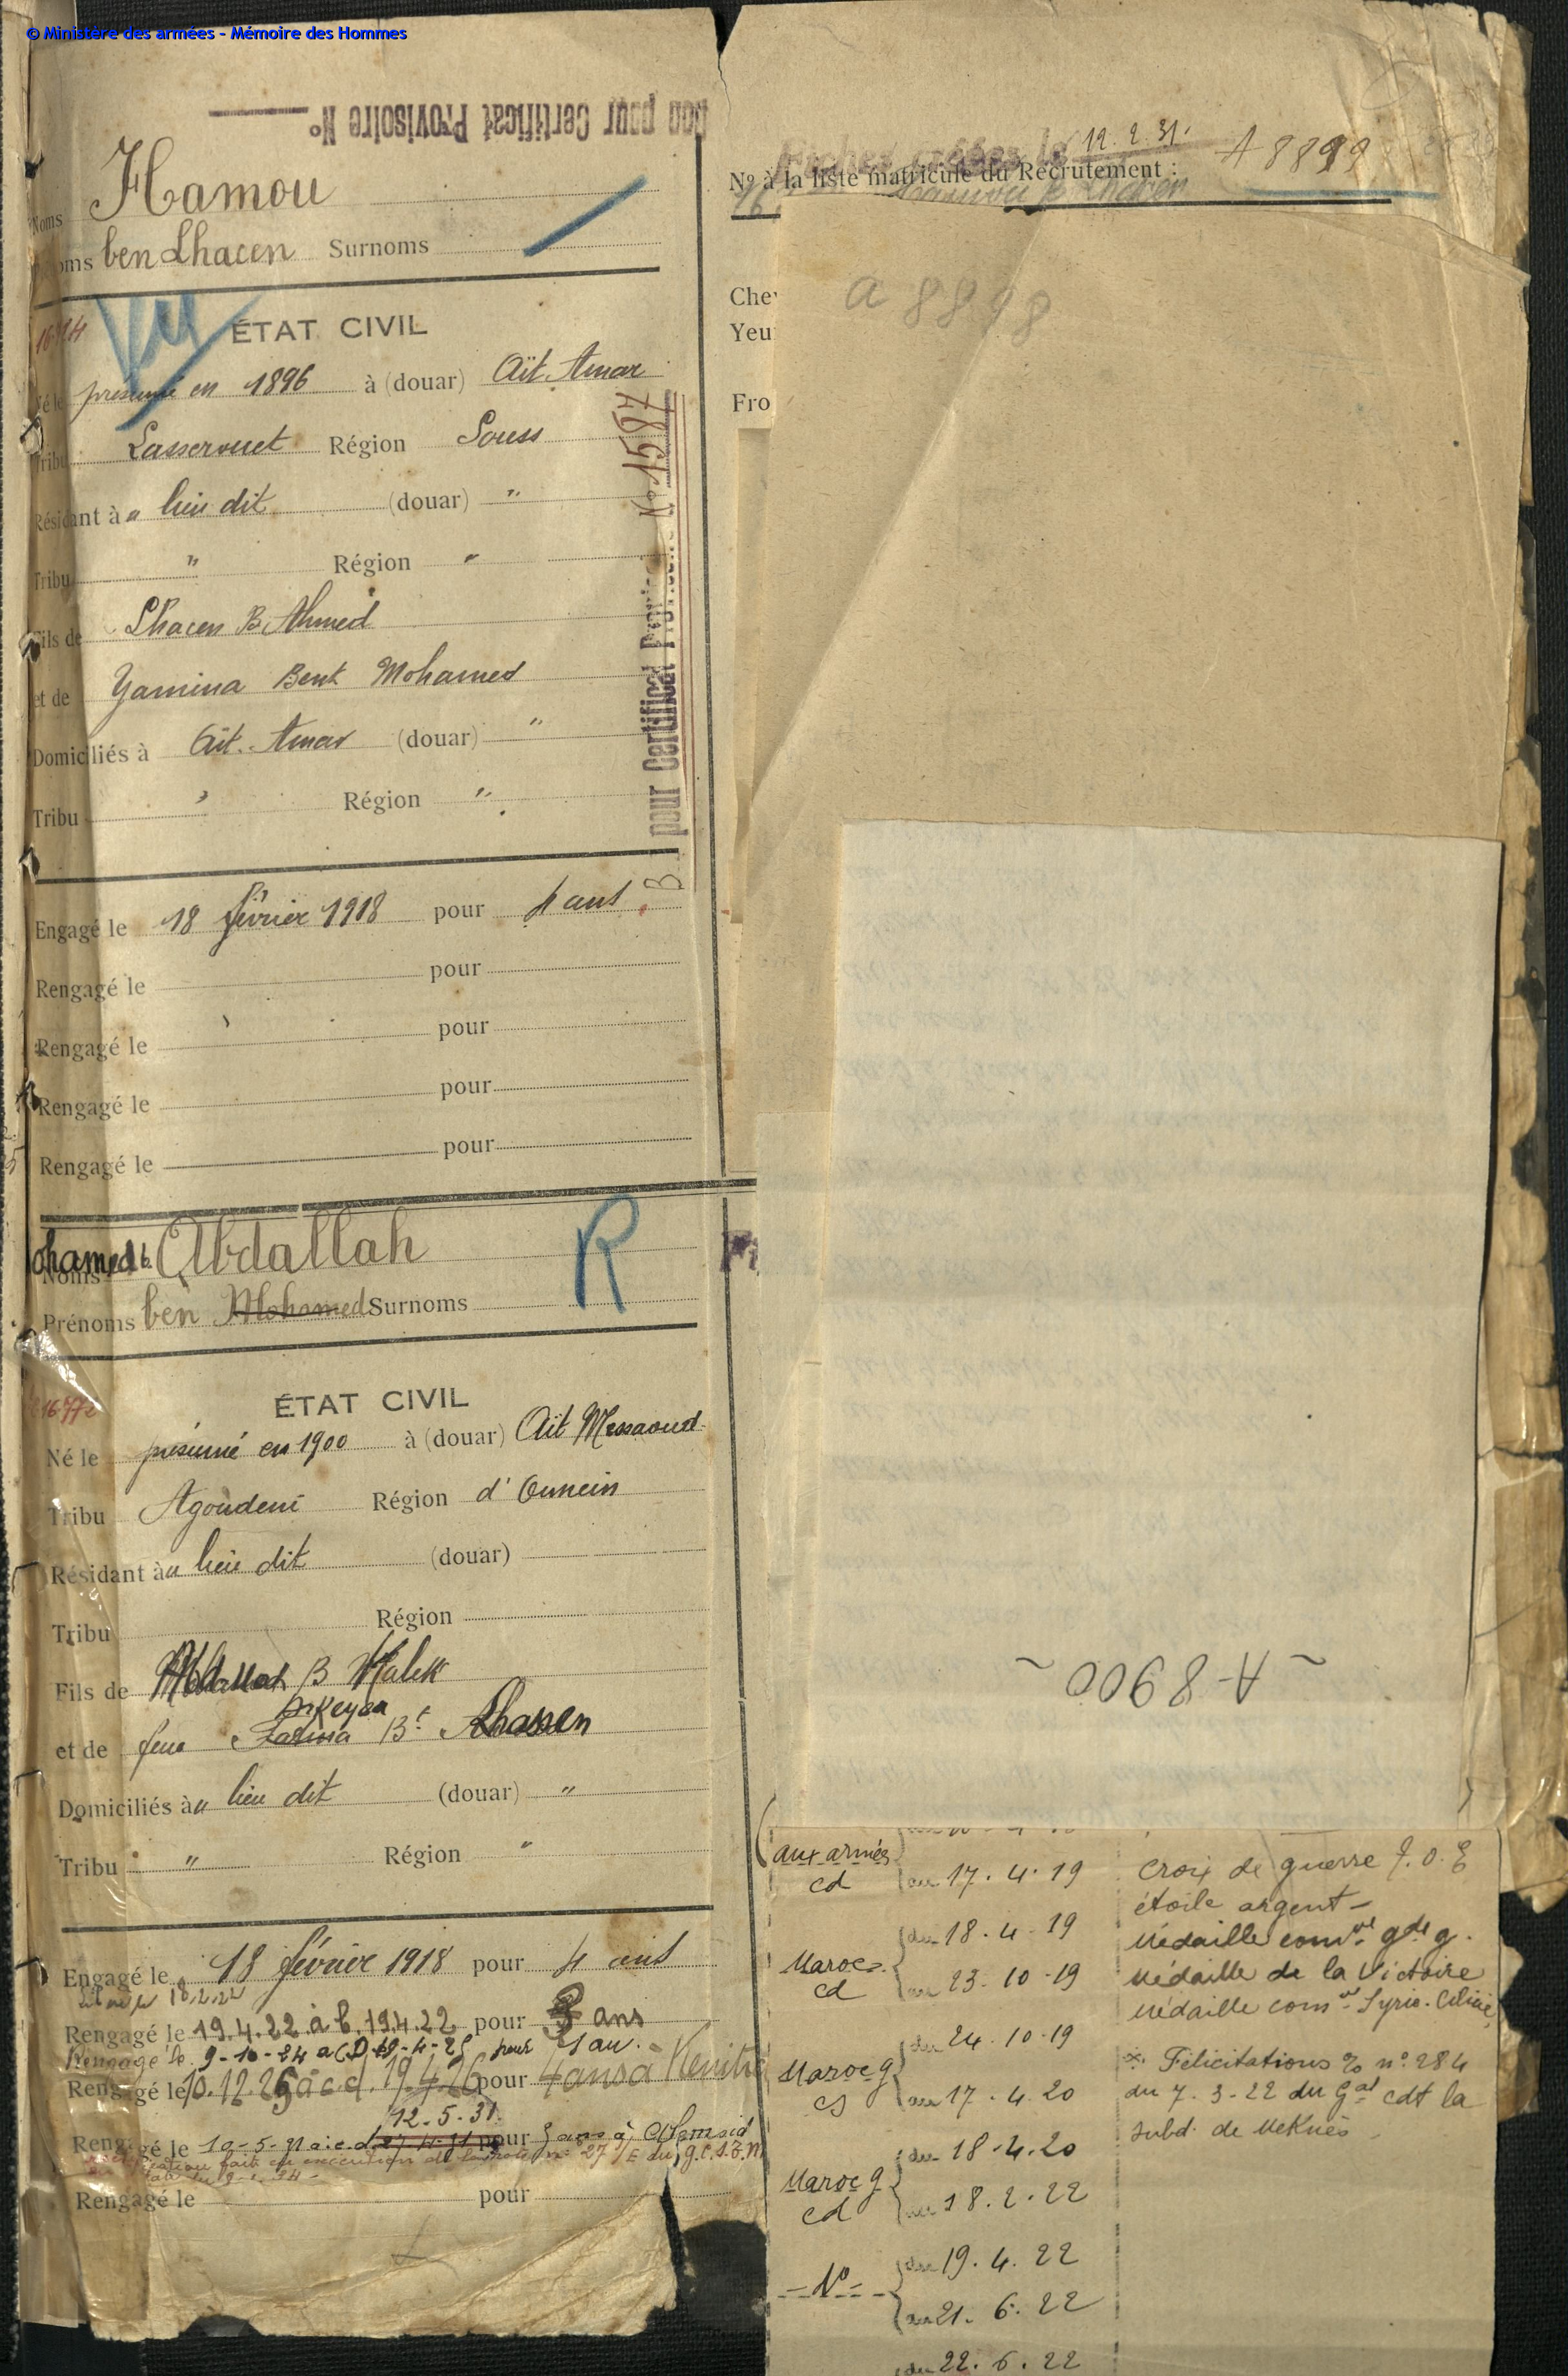 © Ministère des armées - Mémoire des Hommes
Bon pour Certificat Provisoire N°
Noms Hamou
ben Lhacen Surnoms
Vu
ÉTAT CIVIL
Né le présumé en 1896 à (douar) Aït Amar
Tribu Lasserouet Région Souss
Résidant à u lieu dit (douar) "
Tribu " Région "
Fils de Lhacen B. Ahmed
et de Yamina Bent Mohamed
Domiciliés à Aït. Amar (douar) "
Tribu " Région "
B pour Certificat Provisoire N° 1587
Engagé le 18 février 1918 pour 4 ans
Rengagé le pour
Rengagé le pour
Rengagé le pour
Rengagé le pour
Mohamed b. Abdallah
Noms
R
Prénoms ben Mohamed Surnoms
ÉTAT CIVIL
Né le présumé en 1900 à (douar) Aït Messaoud
Tribu Agoudeni Région d'Ounein
Résidant à u lieu dit (douar)
Tribu Région
Fils de B Malek
et de feue Fatma Bt Lhassen
Domiciliés à u lieu dit (douar) "
Tribu " Région "
Engagé le 18 février 1918 pour 4 ans
Rengagé le 19.4.22 à c. 19.4.22 pour 3 ans
Rengagé le 9-10-24 a CD 19-4-25 pour 1 an.
Rengagé le 10.12.25 à c.d. 19.4.26 pour 4 ans à Kenitra
12-5-31
Rengagé le 10-5-31 à c. d. pour
Rengagé le pour
Fiches créées le 12.2.31.
A 8899
N° à la liste matricule du Recrutement :
Hamou b Lhacen
Chev
Yeu
Fro
a 8898
~ A-8900 ~
aux armées
cd
au 17. 4. 19
Maroc
cd
du 18. 4. 19
au 23. 10. 19
Maroc g
cs
du 24. 10. 19
au 17. 4. 20
Maroc g
cd
du 18. 4. 20
au 18. 2. 22
- d° -
du 19. 4. 22
au 21. 6. 22
du 22. 6. 22
Croix de guerre T. O. E
étoile argent -
Médaille comve gde g.
Médaille de la Victoire
Médaille comve Syrie. Cilicie
Félicitations n° 284
du 7. 3. 22 du Gal cdt la
subd. de Meknès